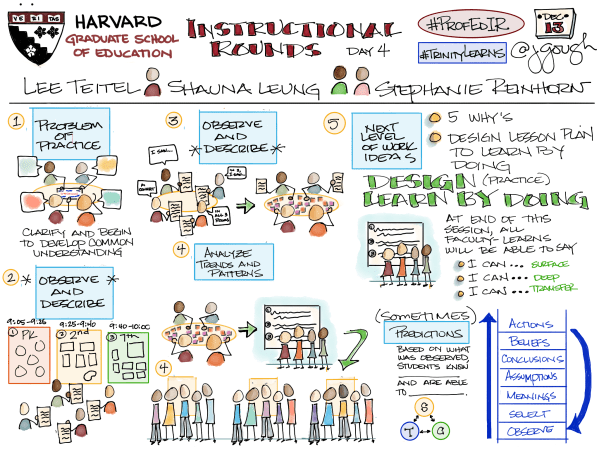 VE RI TAS
HARVARD
GRADUATE SCHOOL
OF EDUCATION
INSTRUCTIONAL
ROUNDS
DAY 4
#PROFEDIR
#TRINITYLEARNS
DEC
13
@jgough
LEE TEITEL
SHAUNA LEUNG
STEPHANIE REINHORN
1
PROBLEM
OF
PRACTICE
CLARIFY AND BEGIN
TO DEVELOP COMMON
UNDERSTANDING
2
* OBSERVE *
AND
DESCRIBE
9:05-9:25
9:25-9:40
9:40-10:00
1 PK
2 2nd
3 7th
3
* OBSERVE
AND
DESCRIBE *
I SAW...
IN ALL 3
ROOMS
4
ANALYZE
TRENDS AND
PATTERNS
1
2
3
4
5
NEXT
LEVEL
OF WORK
IDEAS
5 WHY'S
DESIGN LESSON PLAN
TO LEARN BY
DOING
DESIGN (PRACTICE)
LEARN BY DOING
1
2
3
AT END OF THIS
SESSION, ALL
FACULTY-LEARNERS
WILL BE ABLE TO SAY
I CAN... SURFACE
I CAN... DEEP
I CAN... TRANSFER
(SOMETIMES)
PREDICTIONS
BASED ON WHAT
WAS OBSERVED,
STUDENTS KNOW
AND ARE ABLE
TO
S
T
C
ACTIONS
BELIEFS
CONCLUSIONS
ASSUMPTIONS
MEANINGS
SELECT
OBSERVE